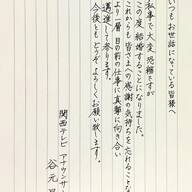 いつもお世話になっている皆様へ
私事で大変恐縮ですが
この度結婚することになりました。
これからも皆さまへの感謝の気持を忘れることな
より一層目の前の仕事に真摯に向き合い
邁進して参ります。
今後ともどうぞよろしくお願い致します。
関西テレビ アナウンサー
谷元